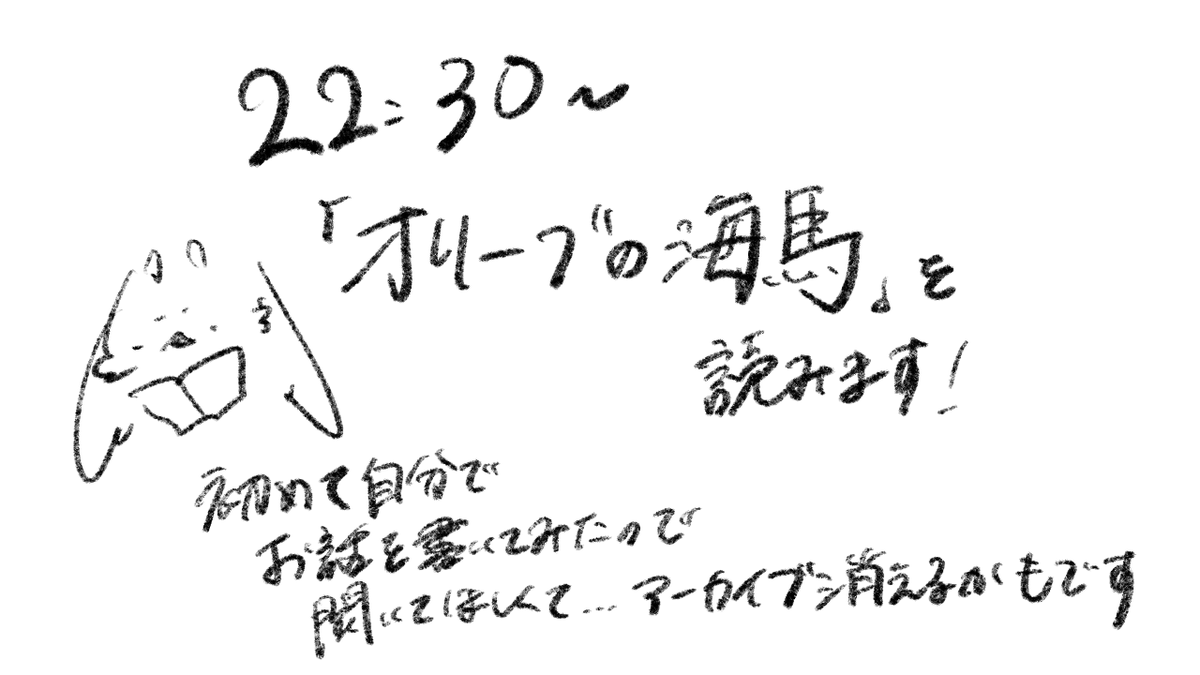 22:30~
「オリーブの海馬」を
読みます!
初めて自分で
お話を書いてみたので
聞いてほしくて...アーカイブ消えるかもです